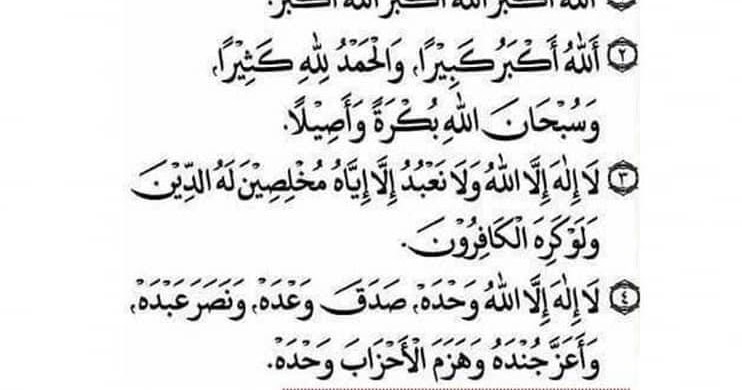 اَللهُ اَكْبَرُ اللهُ اَكْبَرُ اللهُ اَكْبَرُ اللهُ اَكْبَرُ.
٢ اَللهُ أَكْبَرُ كَبِيْرًا، وَالْحَمْدُ لِلّٰهِ كَثِيْرًا،
وَسُبْحَانَ اللهِ بُكْرَةً وَأَصِيْلًا.
٣ لَا إِلٰهَ إِلَّا اللهُ وَلَا نَعْبُدُ إِلَّا إِيَّاهُ مُخْلِصِيْنَ لَهُ الدِّيْنَ
وَلَوْ كَرِهَ الْكَافِرُوْنَ.
٤ لَا إِلٰهَ إِلَّا اللهُ وَحْدَهْ، صَدَقَ وَعْدَهْ، وَنَصَرَ عَبْدَهْ،
وَأَعَزَّ جُنْدَهُ وَهَزَمَ الْأَحْزَابَ وَحْدَهْ.